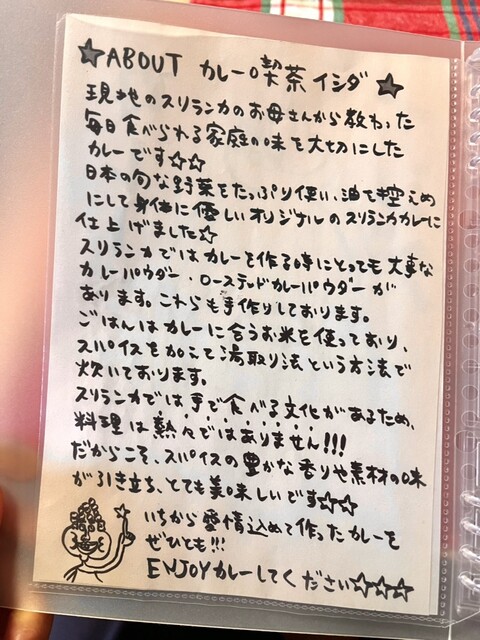 ★ABOUT カレー喫茶イシダ★
現地のスリランカのお母さんから教わった
毎日食べられる家庭の味を大切にした
カレーです☆☆
日本の旬な野菜をたっぷり使い、油を控えめ
にして身体に優しいオリジナルのスリランカカレーに
仕上げました☆
スリランカではカレーを作る時にとっても大事な
カレーパウダー・ローステッドカレーパウダーが
あります。これらも手作りしております。
ごはんはカレーに合うお米を使っており、
スパイスを加えて湯取り法という方法で
炊いております。
スリランカでは手で食べる文化があるため、
料理は熱々ではありません!!!
だからこそ、スパイスの豊かな香りや素材の味
が引き立ち、とても美味しいです☆☆
いちから愛情込めて作ったカレーを
ぜひとも!!!
ENJOYカレーしてください☆☆☆